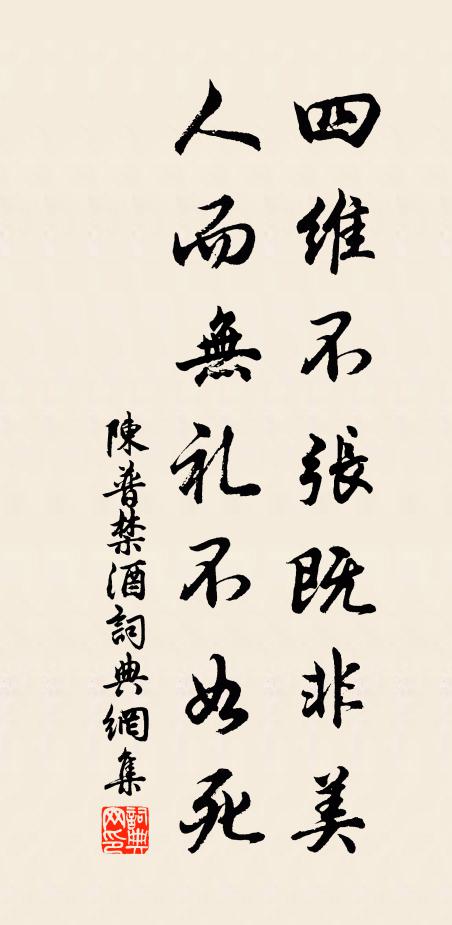 四维不張既非美
人而無礼不如死
陳普禁酒詞典網集
詞典网印